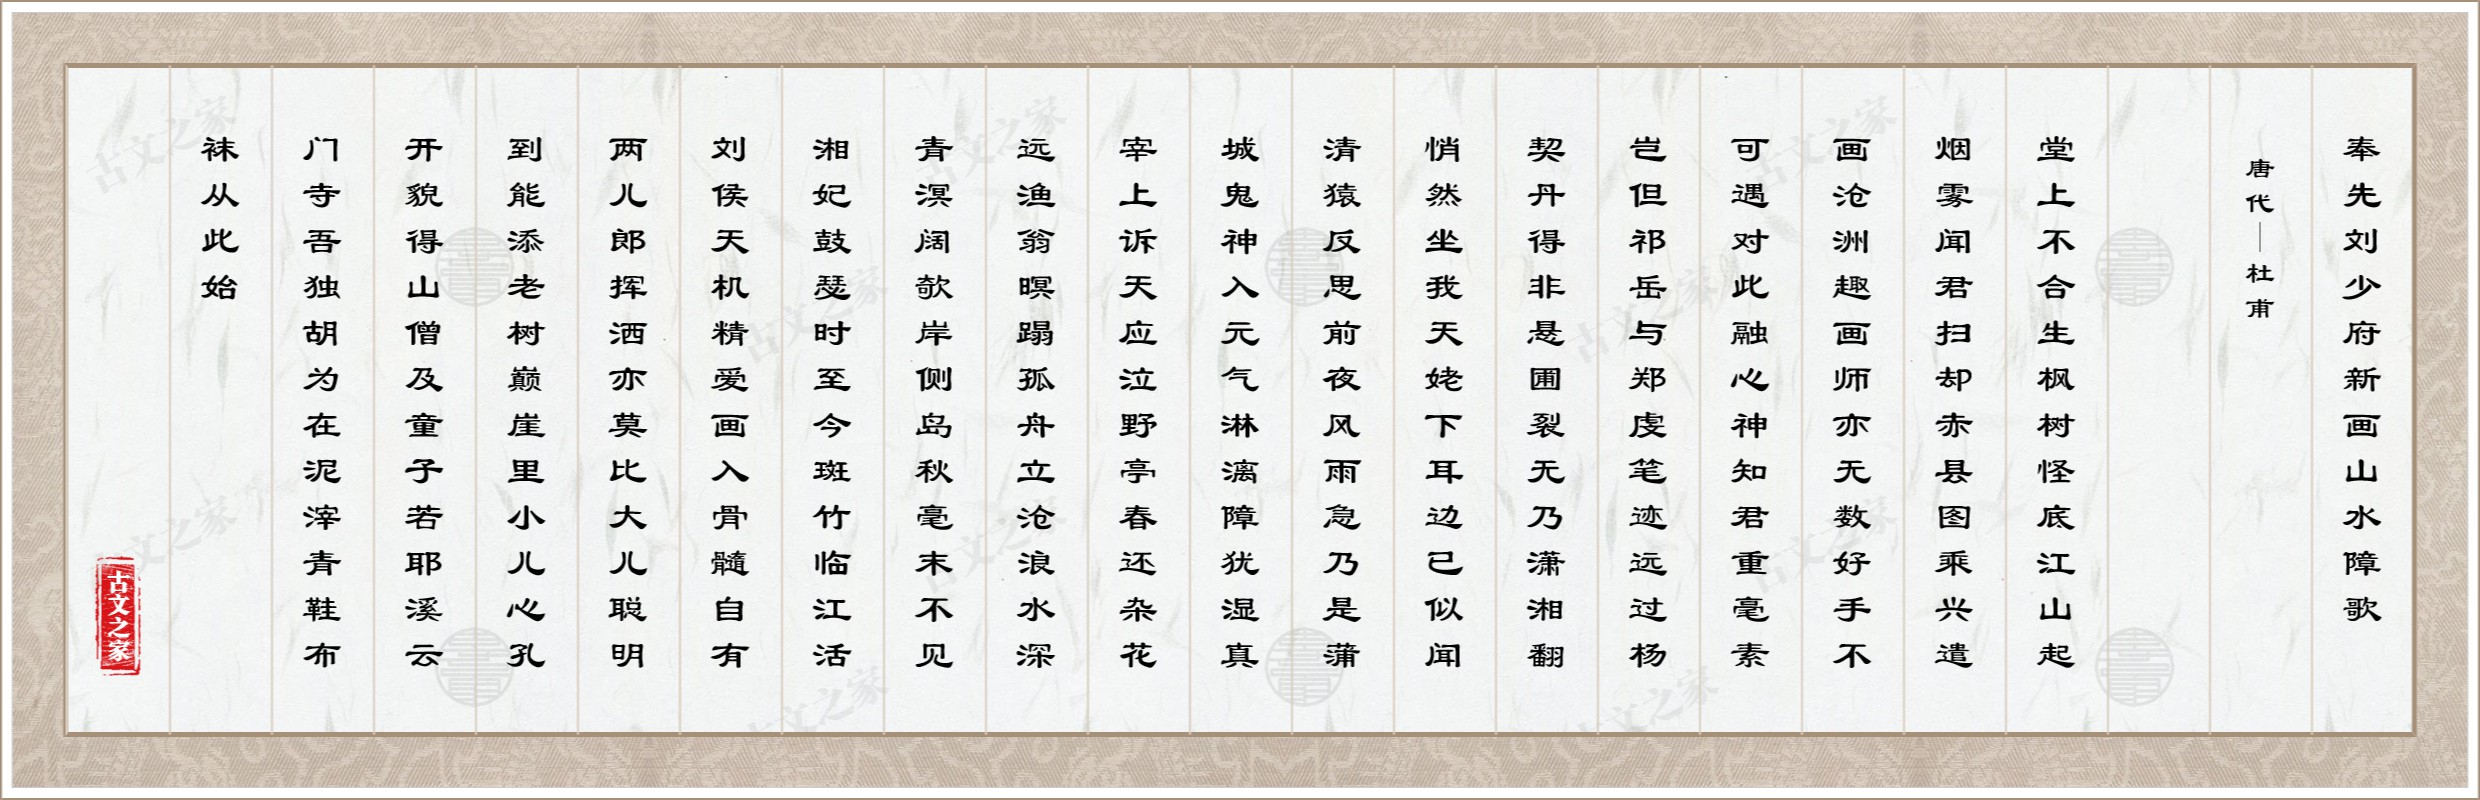 奉先刘少府新画山水障歌
唐代—杜甫
堂上不合生枫树怪底江山起
烟雾闻君扫却赤县图乘兴遣
画沧洲趣画师亦无数好手不
可遇对此融心神知君重毫素
岂但祁岳与郑虔笔迹远过杨
契丹得非悬圃裂无乃潇湘翻
悄然坐我天姥下耳边已似闻
清猿反思前夜风雨急乃是蒲
城鬼神入元气淋漓障犹湿真
宰上诉天应泣野亭春还杂花
远渔翁暝蹋孤舟立沧浪水深
青溟阔欹岸侧岛秋毫末不见
湘妃鼓瑟时至今斑竹临江活
刘侯天机精爱画入骨髓自有
两儿郎挥洒亦莫比大儿聪明
到能添老树巅崖里小儿心孔
开貌得山僧及童子若耶溪云
门寺吾独胡为在泥滓青鞋布
袜从此始
古文之家